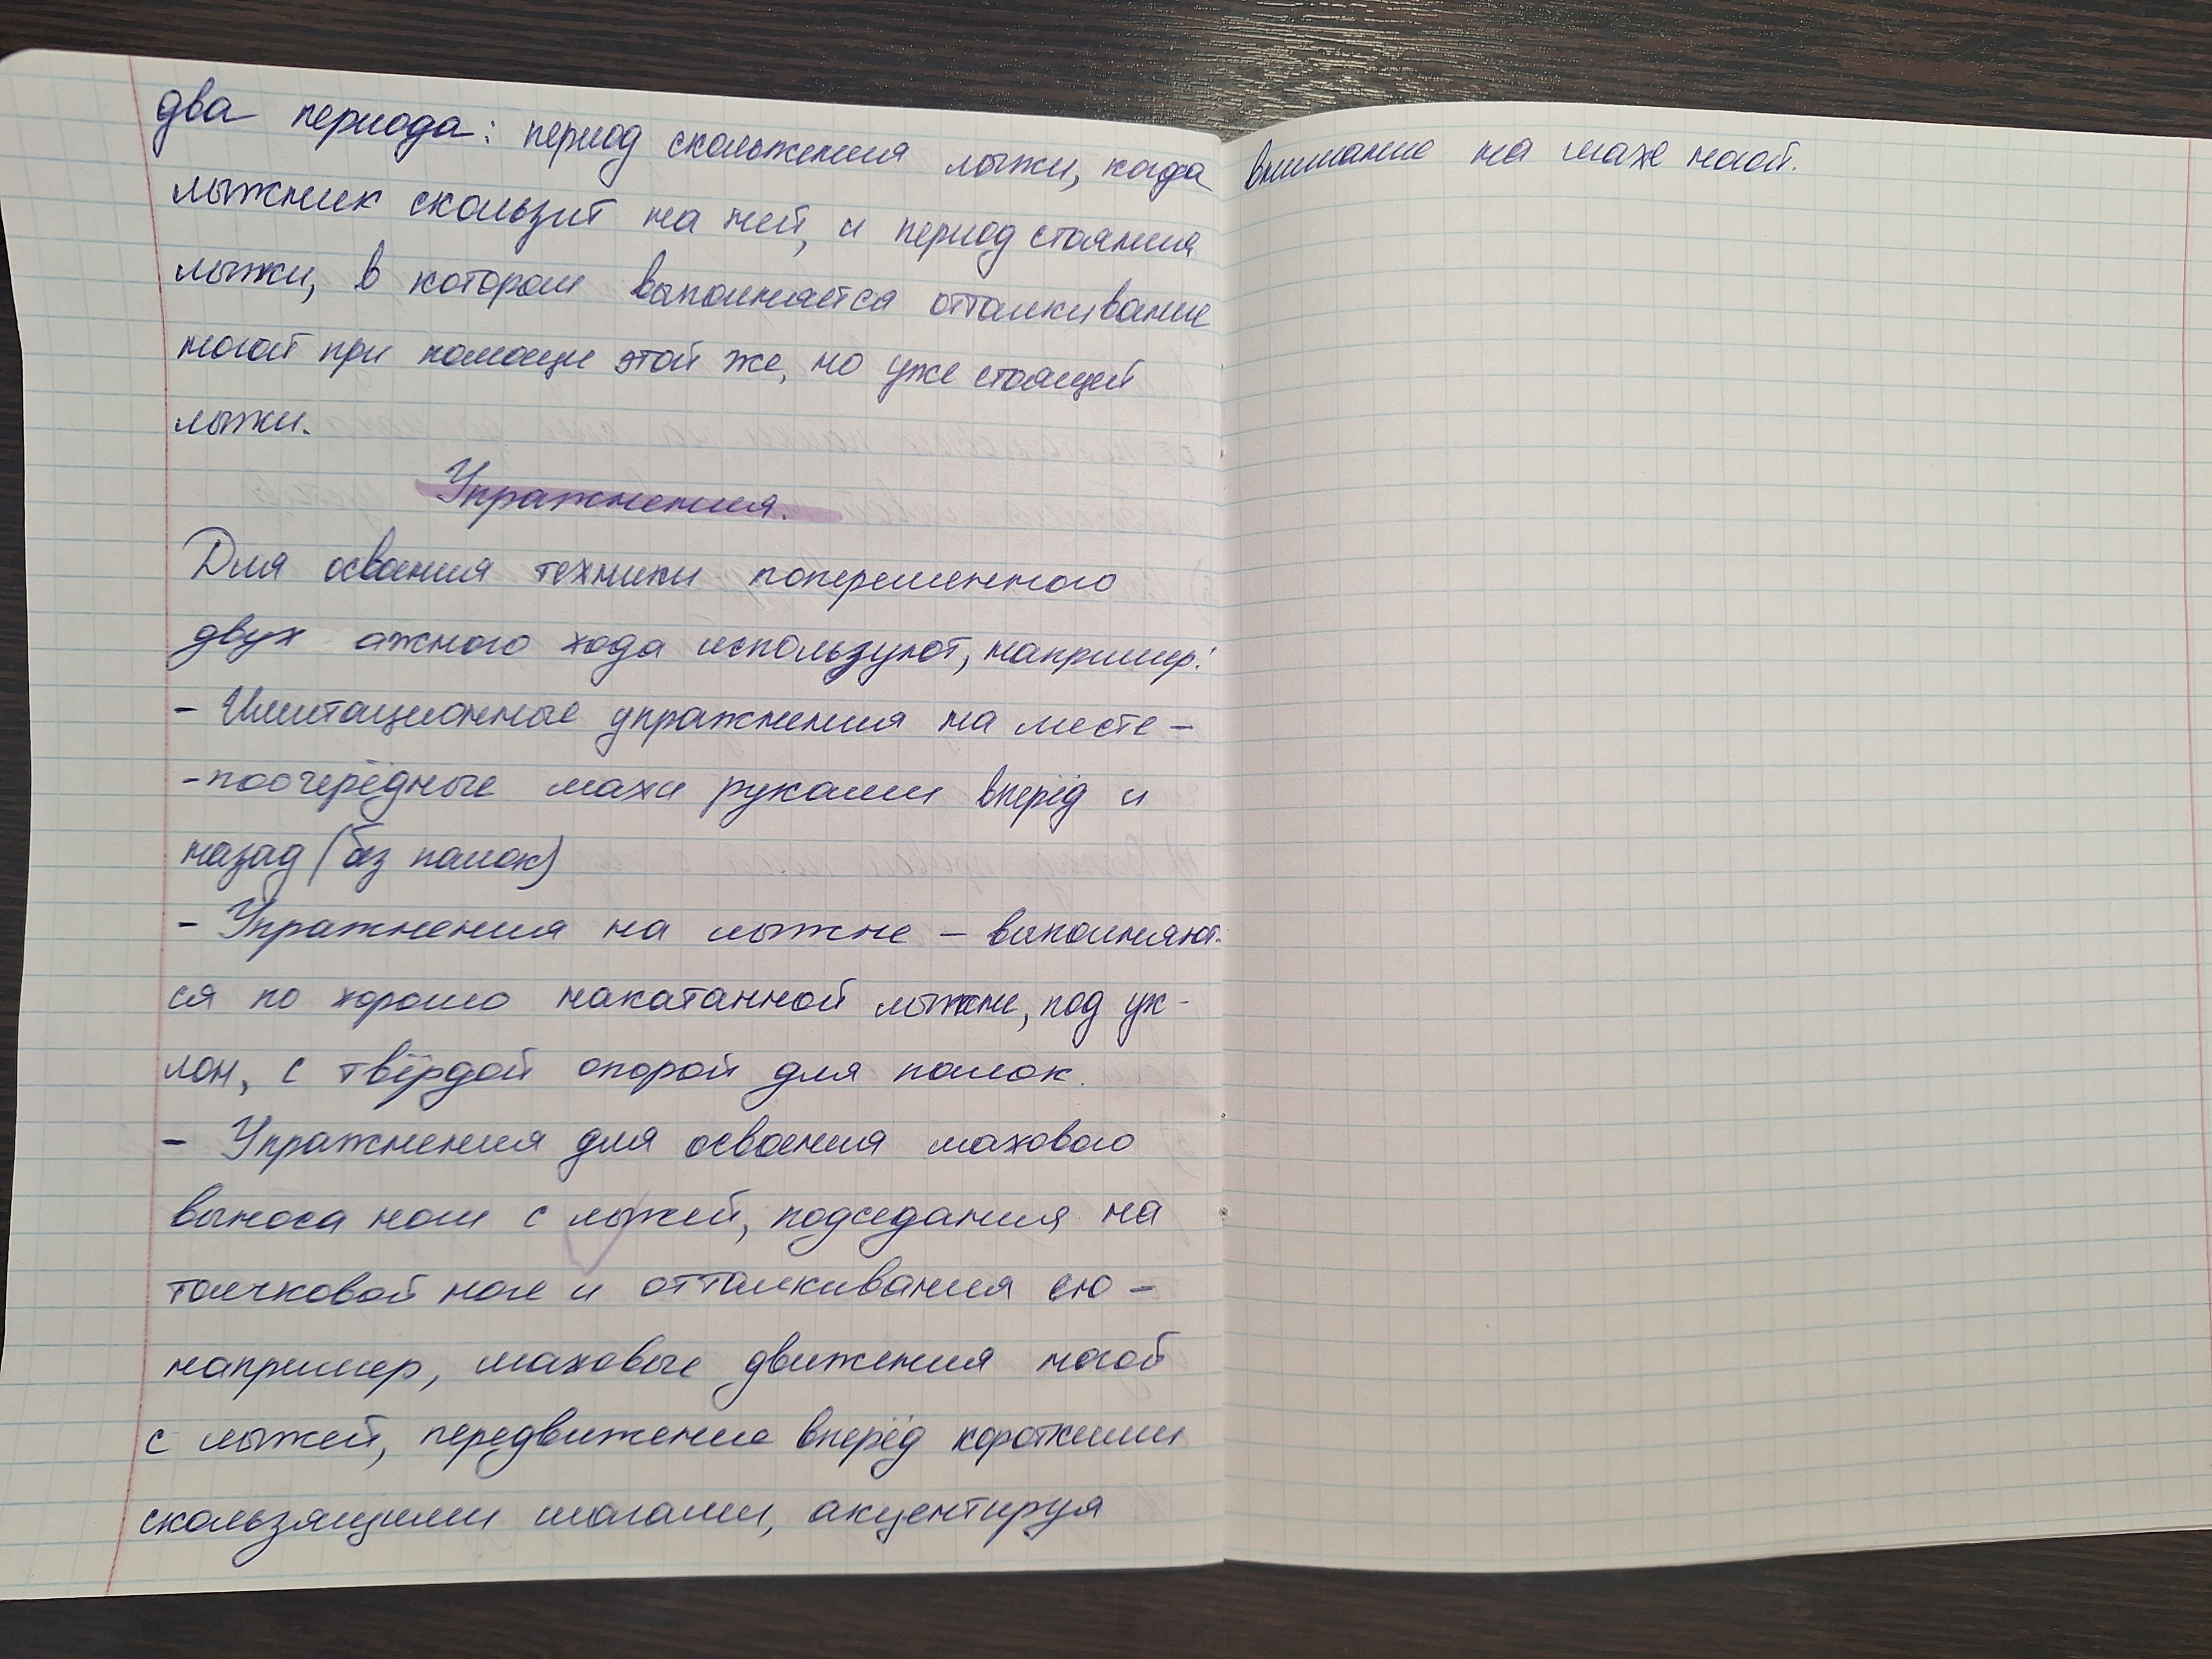 два периода: период скольжения лыжи, когда
лыжник скользит на ней, и период стояния
лыжи, в котором выполняется отталкивание
ногой при помощи этой же, но уже стоящей
лыжи.
Упражнения.
Для освоения техники попеременного
двух ажного хода используют, например:
- Имитационные упражнения на месте -
-поочерёдные махи руками вперёд и
назад (без палок)
- Упражнения на лыжне - выполняют-
ся по хорошо накатанной лыжне, под ук-
лон, с твёрдой опорой для палок.
- Упражнения для освоения махового
выноса ноги с лыжей, подседания на
толчковой ноге и отталкивания ею -
например, маховые движения ногой
с лыжей, передвижение вперёд короткими
скользящими шагами, акцентируя
внимание на махе ногой.